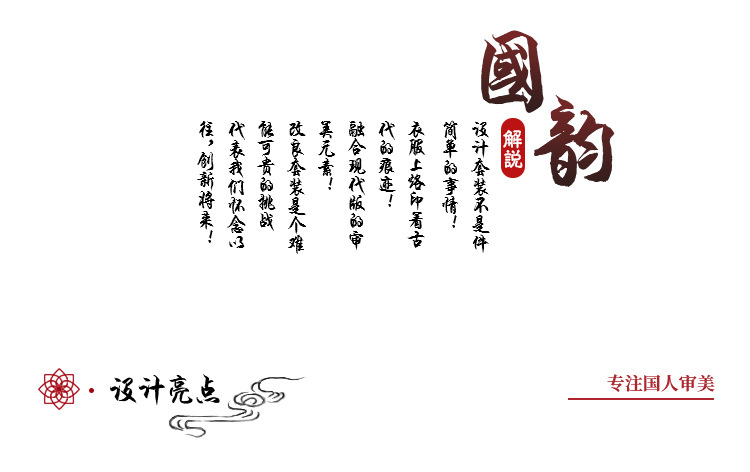 國韵
解説
设计套装不是件
简单的事情！
衣服上烙印着古
代的痕迹！
融合现代版的审
美元素！
改良套装是个难
能可贵的挑战
代表我们怀念以
往，创新将来！
设计亮点
专注国人审美